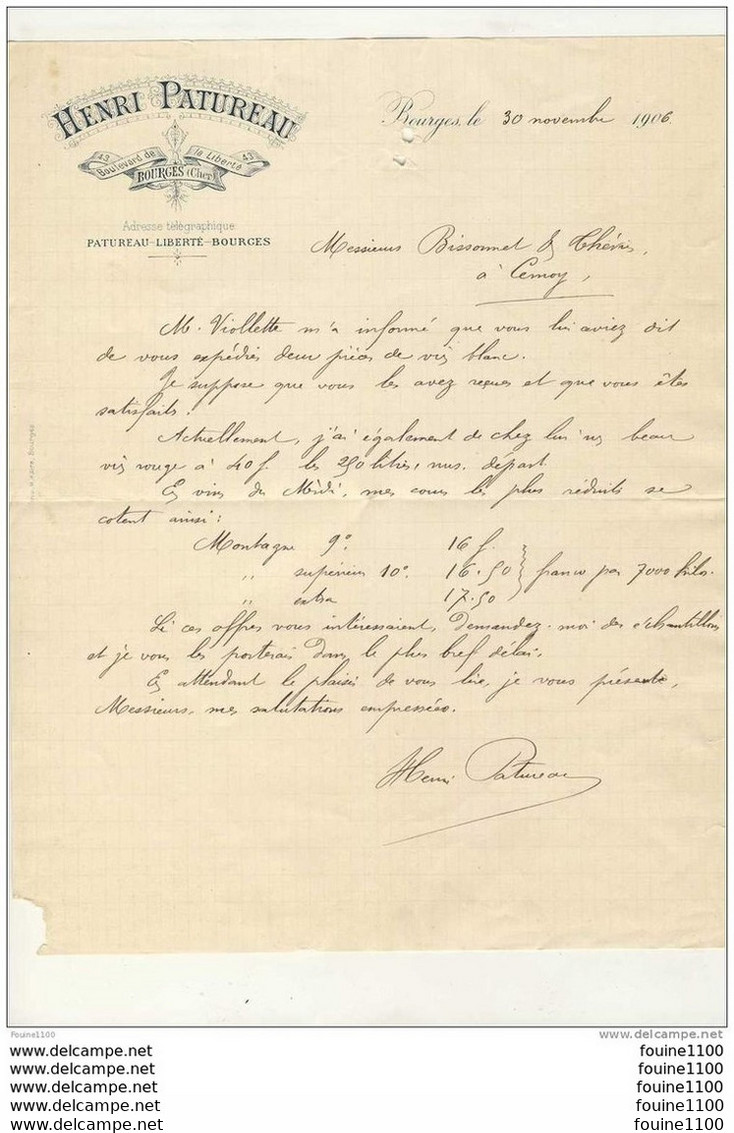 HENRI PATUREAU
43 Boulevard de la Liberté 43
BOURGES (Cher)
Adresse télégraphique
PATUREAU-LIBERTÉ-BOURGES
Bourges, le 30 novembre 1906
Messieurs Bissonnet &
à Cernoy,
M. Viollette m'a informé que vous lui aviez dit
de vous expédier deux pièces de vin blanc.
Je suppose que vous les avez reçues et que vous êtes
satisfaits.
Actuellement, j'ai également de chez lui un beau
vin rouge à 40 f. les 250 litres, nus, départ.
En vins du Midi, mes cours les plus réduits se
cotent ainsi :
Montagne 9° 16 f.
" supérieur 10° 16.50 franco par 7000 kilos.
" extra 17.50
Si ces offres vous intéressaient, demandez-moi des échantillons
et je vous les porterais dans le plus bref délai.
En attendant le plaisir de vous lire, je vous présente,
Messieurs, mes salutations empressées.
Henri Patureau
Fouine1100
www.delcampe.net
www.delcampe.net fouine1100
www.delcampe.net fouine1100
www.delcampe.net fouine1100
www.delcampe.net fouine1100
www.delcampe.net fouine1100